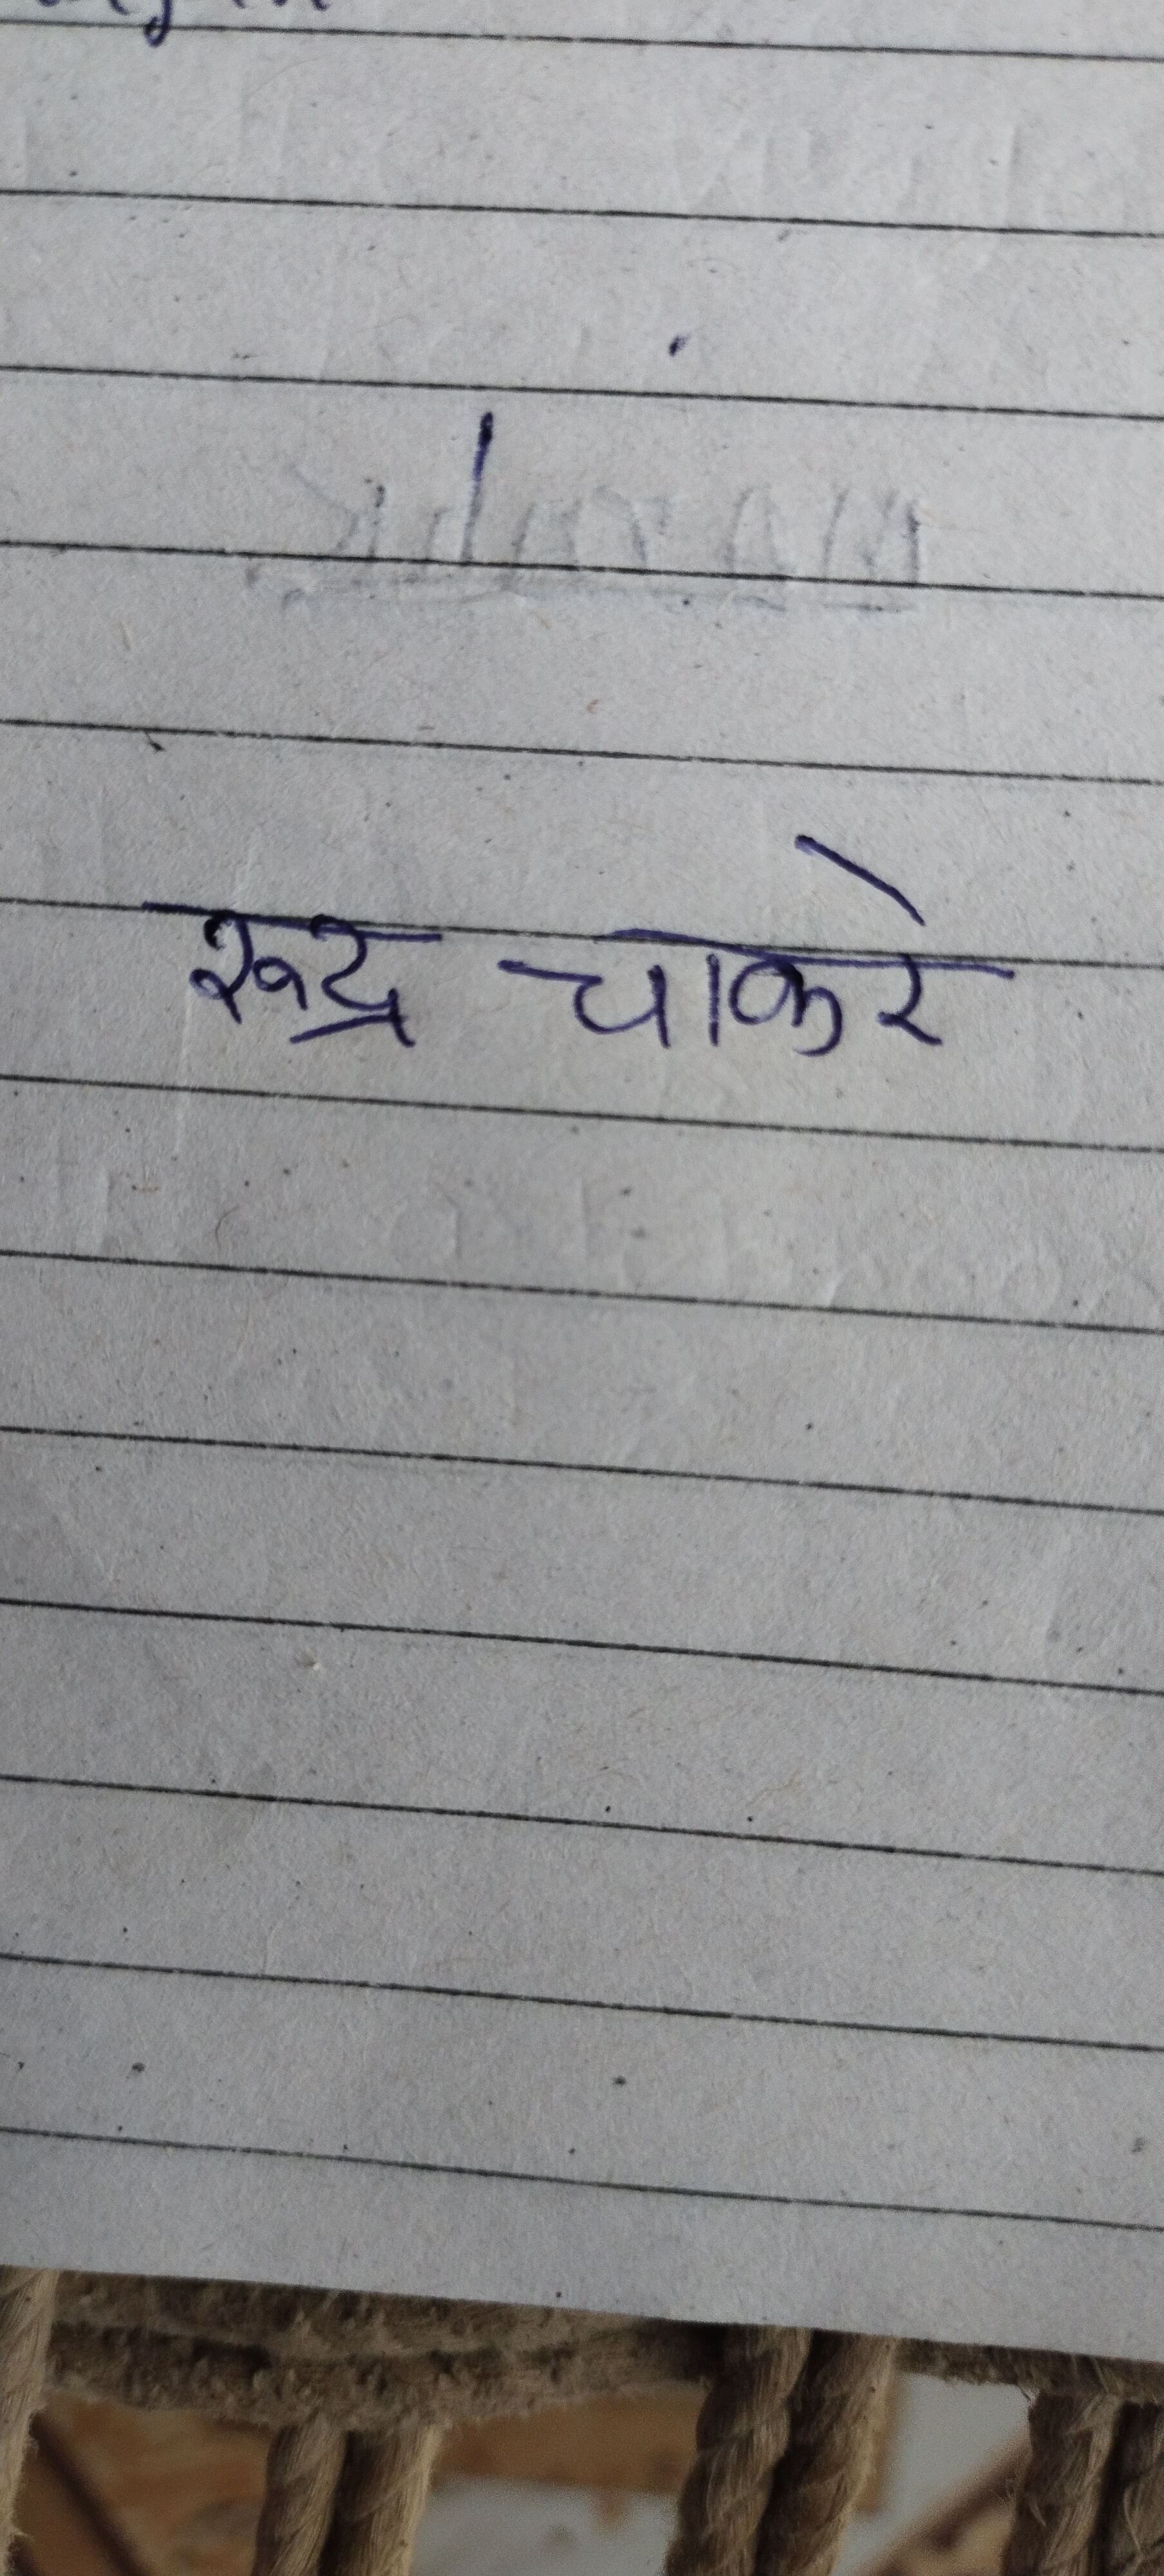 रुद्र चाकरे